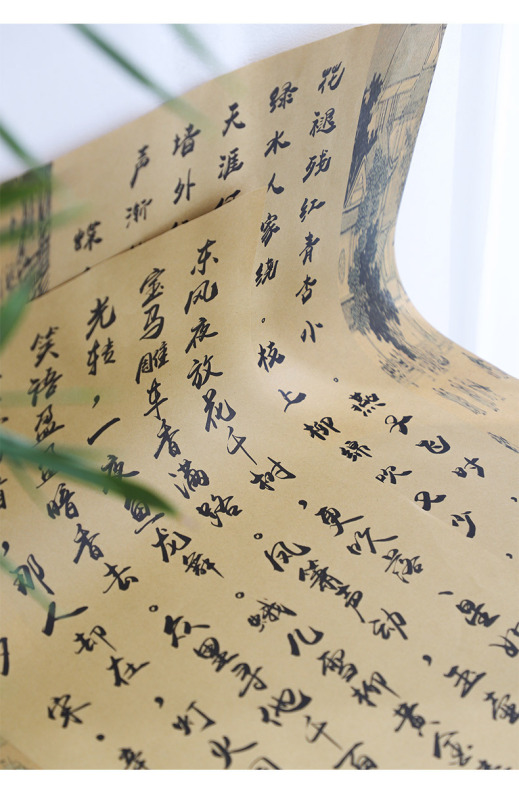 花褪残红青杏小。燕子飞时
绿水人家绕。枝上柳绵吹又少
天涯
墙外
声渐
蝶
东风夜放花千树。更吹落，星如
宝马雕车香满路。凤箫声动，玉壶
光转，一夜鱼龙舞。蛾儿雪柳黄金
笑语盈盈暗香去。众里寻他千百
，那人却在，灯火
宋·辛